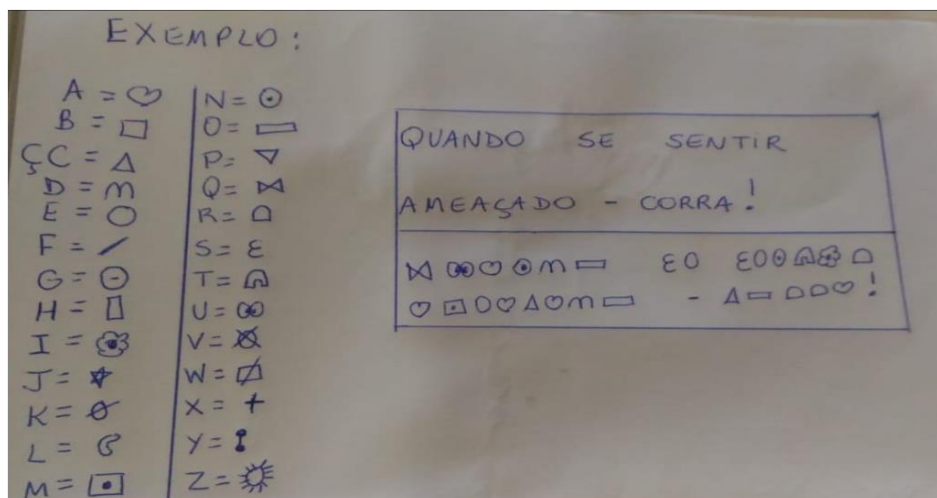 EXEMPLO:
A = ♡
B = □
ÇC = △
D = m
E = ○
F = /
G = ⊖
H = ▯
I =
J = ☆
K = ϴ
L =
M = ⊡
N = ⊙
O = ▭
P = ▽
Q = ⋈
R = D
S = ε
T =
U = ꝏ
V =
W =
X = +
Y =
Z =
QUANDO SE SENTIR
AMEAÇADO - CORRA!
⋈ ꝏ ♡ ⊙ m ▭ ε○ ε○⊙ D
♡ ⊡ ○ ♡ △ ♡ m ▭ - △ ▭ D D ♡ !